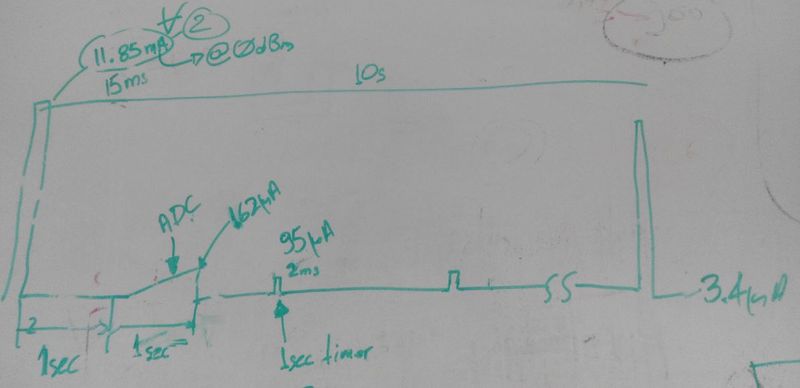 2
11.85mA
@ 0dBm
15ms
10s
ADC
162µA
95µA
2ms
3.4µA
1sec
1sec
1sec timer